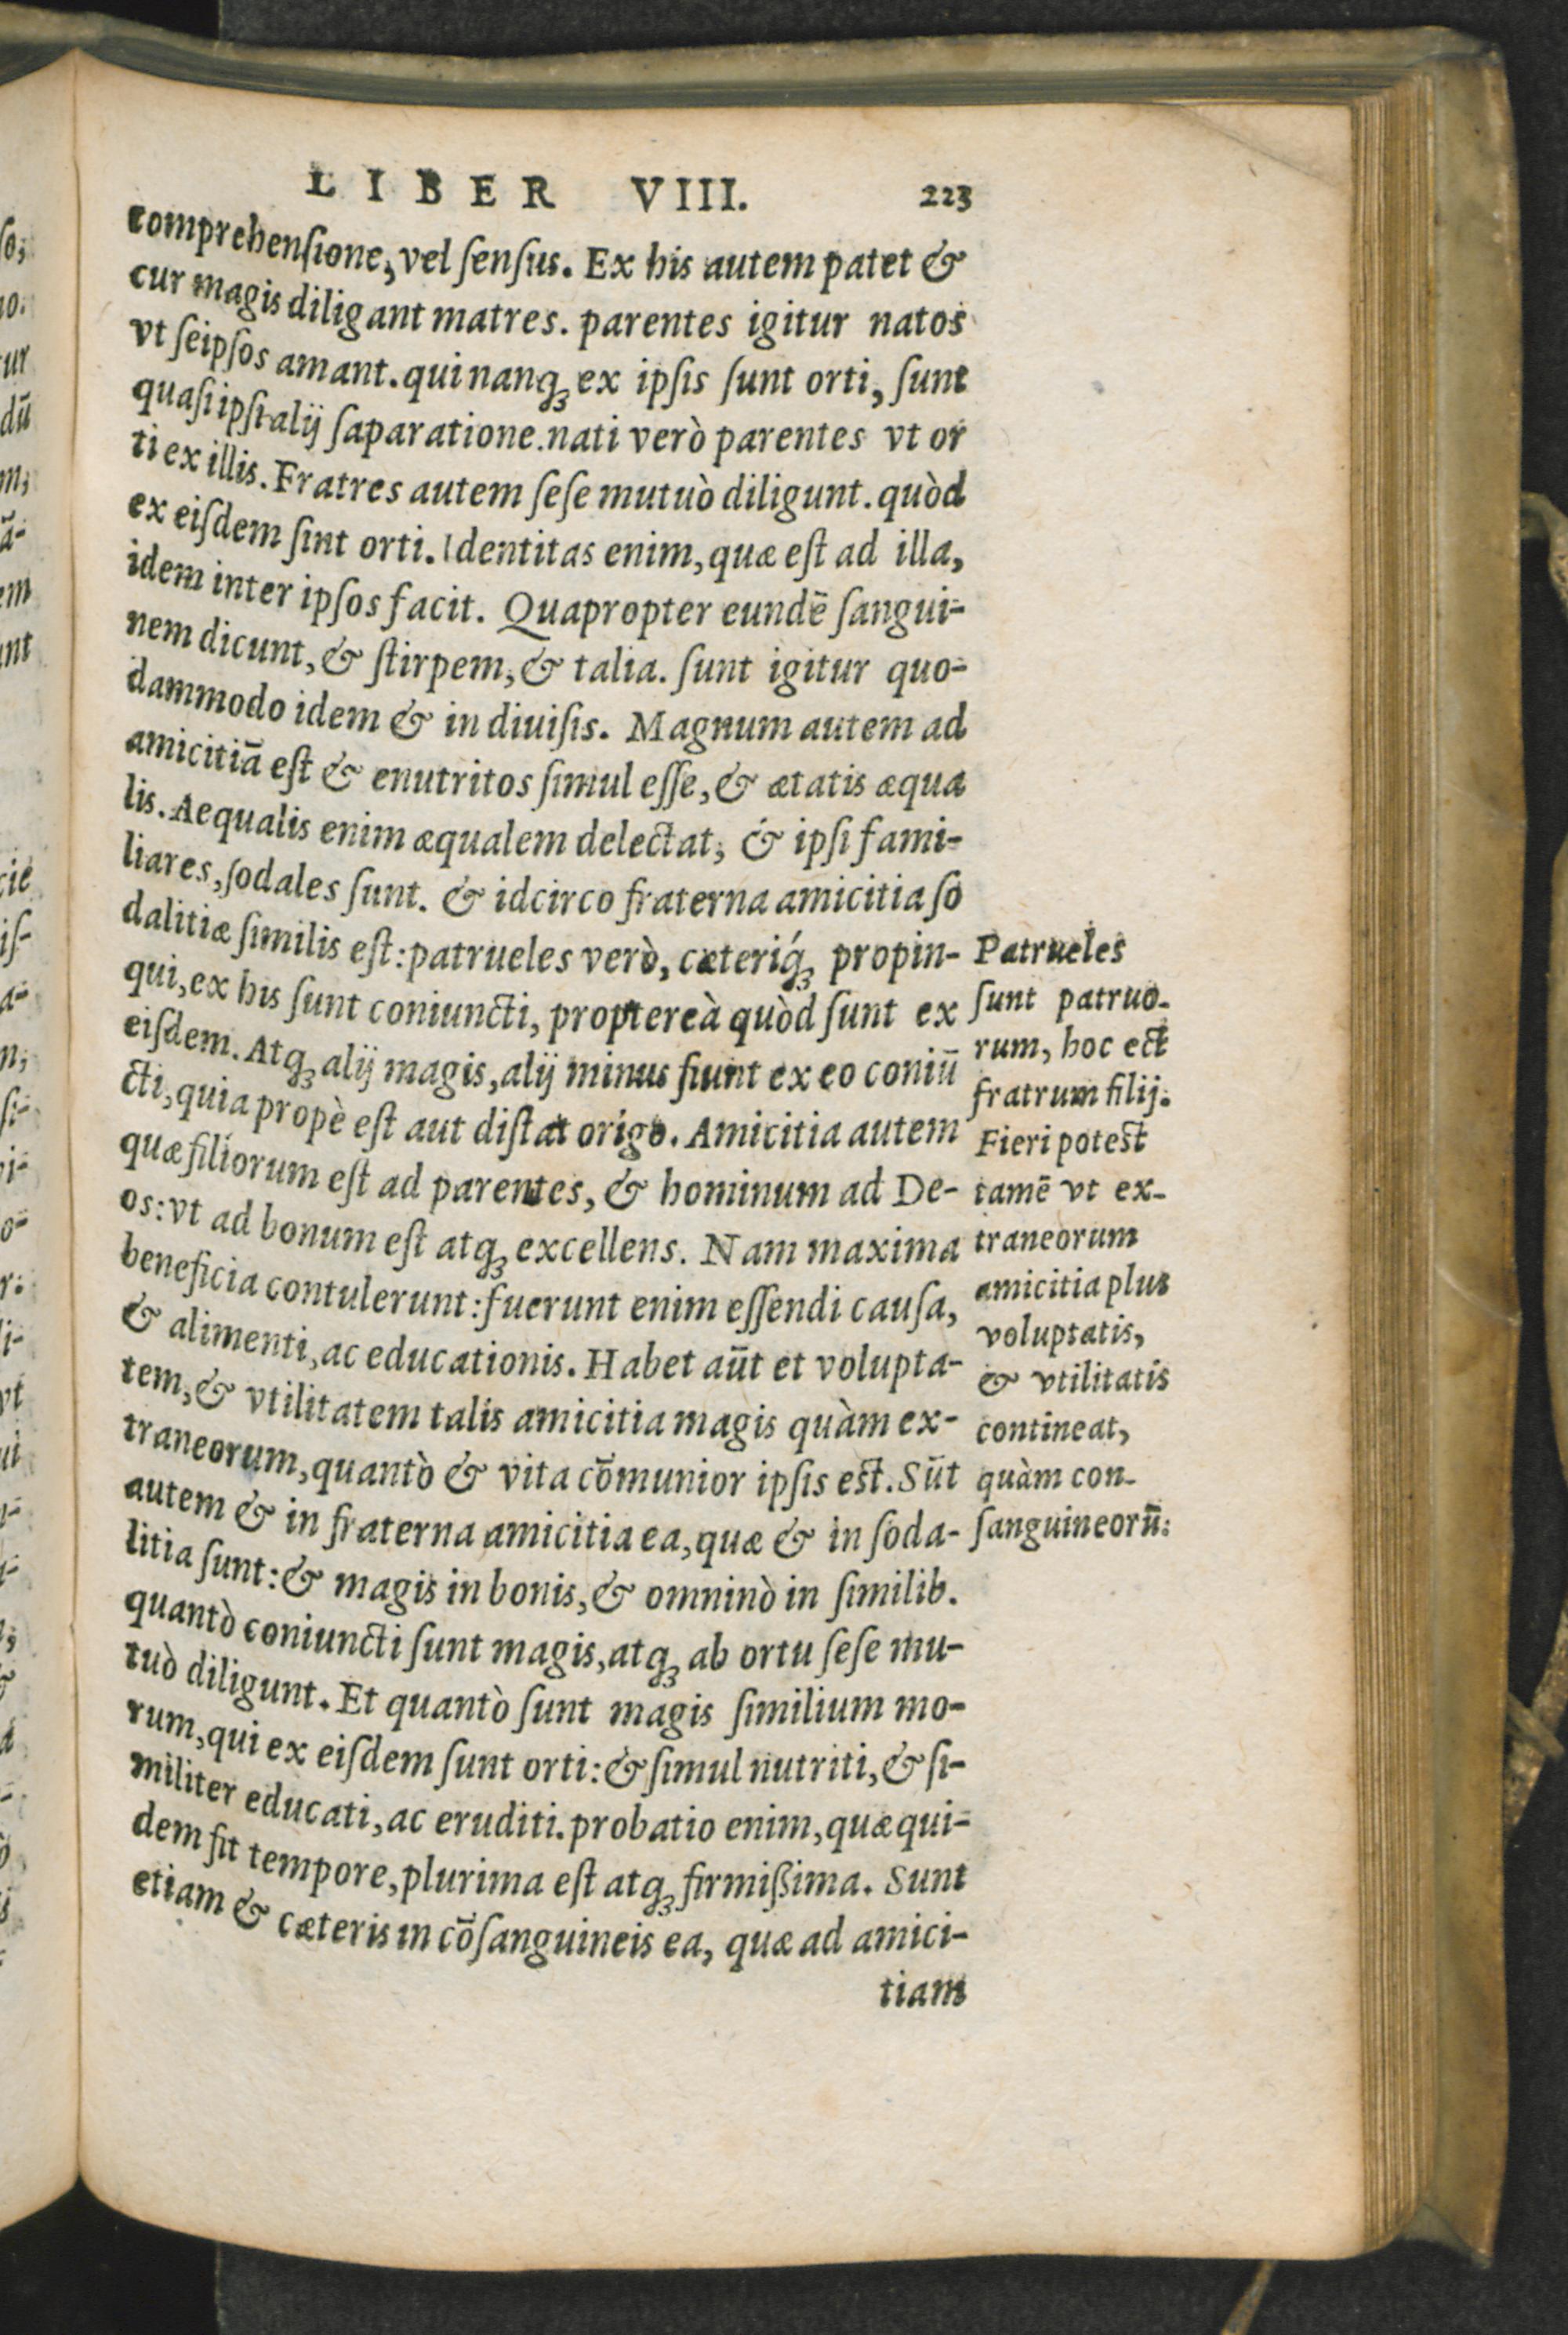 LIBER VIII. 223
comprehenſione, vel ſenſus. Ex his autem patet &
cur magis diligant matres. parentes igitur natos
vt ſeipſos amant. qui nanq; ex ipſis ſunt orti, ſunt
quaſi ipſi alij ſaparatione. nati verò parentes vt or
ti ex illis. Fratres autem ſeſe mutuò diligunt. quòd
ex eiſdem ſint orti. Identitas enim, quæ eſt ad illa,
idem inter ipſos facit. Quapropter eundē ſangui-
nem dicunt, & ſtirpem, & talia. ſunt igitur quo-
dammodo idem & in diuiſis. Magnum autem ad
amicitiā eſt & enutritos ſimul eſſe, & ætatis æqua
lis. Aequalis enim æqualem delectat, & ipſi fami-
liares, ſodales ſunt. & idcirco fraterna amicitia ſo
dalitiæ ſimilis eſt: patrueles verò, cæteriq́; propin-
qui, ex his ſunt coniuncti, propterea̍ quòd ſunt ex
eiſdem. Atq; alij magis, alij minus fiunt ex eo coniū
cti, quia propè eſt aut diſtat origo. Amicitia autem
quæ filiorum eſt ad parentes, & hominum ad De-
os: vt ad bonum eſt atq; excellens. Nam maxima
beneficia contulerunt: fuerunt enim eſſendi cauſa,
& alimenti, ac educationis. Habet aūt et volupta-
tem, & vtilitatem talis amicitia magis quàm ex-
traneorum, quantò & vita cōmunior ipſis eſt. Sūt
autem & in fraterna amicitia ea, quæ & in ſoda-
litia ſunt: & magis in bonis, & omninò in ſimilib.
quantò coniuncti ſunt magis, atq; ab ortu ſeſe mu-
tuò diligunt. Et quantò ſunt magis ſimilium mo-
rum, qui ex eiſdem ſunt orti: & ſimul nutriti, & ſi-
militer educati, ac eruditi. probatio enim, quæ qui-
dem fit tempore, plurima eſt atq; firmißima. Sunt
etiam & cæteris in cōſanguineis ea, quæ ad amici-
tiam
Patrueles
ſunt patruo-
rum, hoc eſt
fratrum filij.
Fieri poteſt
tamē vt ex-
traneorum
amicitia plus
voluptatis,
& vtilitatis
contineat,
quàm con-
ſanguineorū: